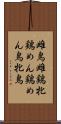 雌鳥雌鶏牝
鶏めん鶏め
ん鳥牝鳥